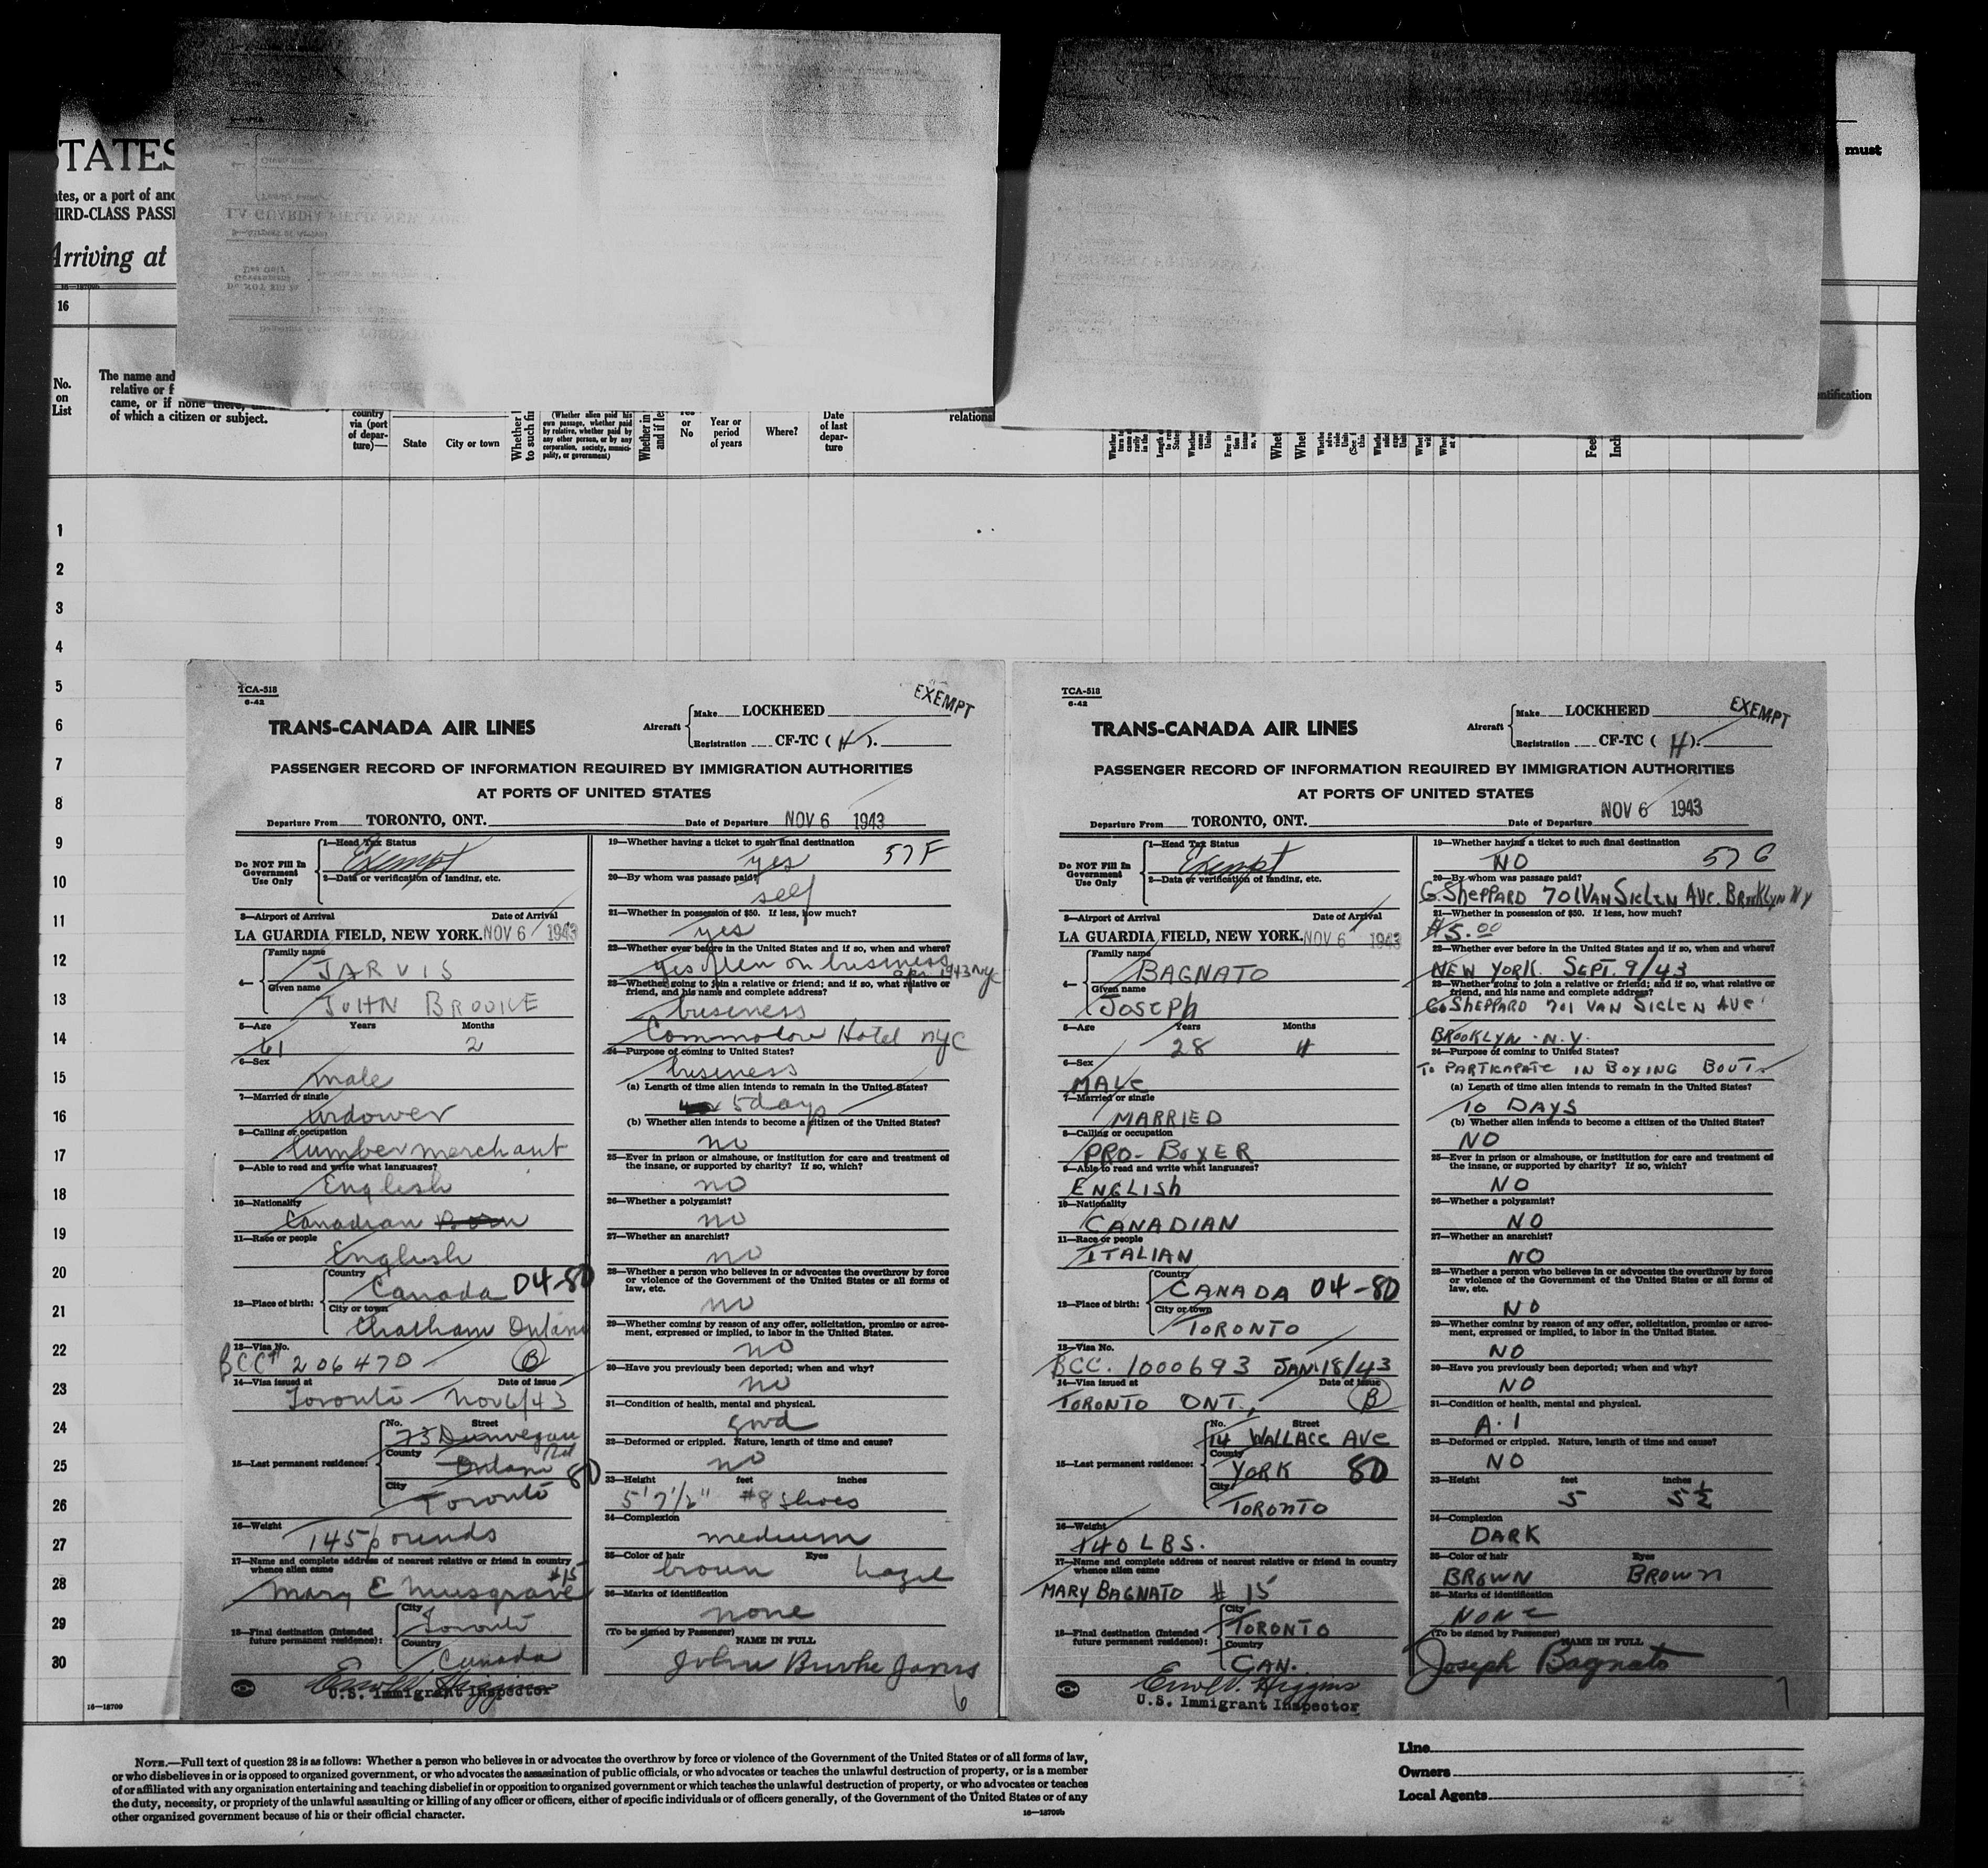 STATES
ates, or a port of ano
HIRD-CLASS PASSE
Arriving at
must
16
No.
on
List
The name and
relative or f
came, or if none there,
of which a citizen or subject.
country
via (port
of depar-
ture)—
State
City or town
(Whether alien paid his
own passage, whether paid
by relative, whether paid by
any other person, or by any
corporation, society, munici-
pality, or government)
Yes
or
No
Year or
period
of years
Where?
Date
of last
depar-
ture
relations
Feet
ntification
1
2
3
4
5
6
7
8
9
10
11
12
13
14
15
16
17
18
19
20
21
22
23
24
25
26
27
28
29
30
16—18709
TCA-518
6-42
EXEMPT
TRANS-CANADA AIR LINES
Aircraft
Make LOCKHEED
Registration CF-TC ( H ).
PASSENGER RECORD OF INFORMATION REQUIRED BY IMMIGRATION AUTHORITIES
AT PORTS OF UNITED STATES
Departure From TORONTO, ONT. Date of Departure NOV 6 1943
Do NOT Fill In
Government
Use Only
1—Head Tax Status
Exempt
2—Data or verification of landing, etc.
3—Airport of Arrival Date of Arrival
LA GUARDIA FIELD, NEW YORK. NOV 6 1943
4—
Family name
JARVIS
Given name
JOHN BROOKE
5—Age Years Months
61 2
6—Sex
male
7—Married or single
widower
8—Calling or occupation
lumber merchant
9—Able to read and write what languages?
English
10—Nationality
Canadian Born
11—Race or people
English
12—Place of birth:
Country
Canada 04-80
City or town
Chatham Ontario
13—Visa No.
BCC# 206470 B
14—Visa issued at Date of issue
Toronto Nov 6/43
15—Last permanent residence:
No. Street
73 Dunvegan Rd
County
Ontario 80
City
Toronto
16—Weight
145 pounds
17—Name and complete address of nearest relative or friend in country
whence alien came
Mary E Musgrave #15
18—Final destination (Intended
future permanent residence):
City
Toronto
Country
Canada
U.S. Immigrant Inspector
19—Whether having a ticket to such final destination
yes 57 F
20—By whom was passage paid?
self
21—Whether in possession of $50. If less, how much?
yes
22—Whether ever before in the United States and if so, when and where?
yes often on business
Apr 1943 NYC
23—Whether going to join a relative or friend; and if so, what relative or
friend, and his name and complete address?
business
Commodore Hotel NYC
24—Purpose of coming to United States?
business
(a) Length of time alien intends to remain in the United States?
5 days
(b) Whether alien intends to become a citizen of the United States?
no
25—Ever in prison or almshouse, or institution for care and treatment of
the insane, or supported by charity? If so, which?
no
26—Whether a polygamist?
no
27—Whether an anarchist?
no
28—Whether a person who believes in or advocates the overthrow by force
or violence of the Government of the United States or all forms of
law, etc.
no
29—Whether coming by reason of any offer, solicitation, promise or agree-
ment, expressed or implied, to labor in the United States.
no
30—Have you previously been deported; when and why?
no
31—Condition of health, mental and physical.
good
32—Deformed or crippled. Nature, length of time and cause?
no
33—Height feet inches
5' 7 1/2" #8 shoes
34—Complexion
medium
35—Color of hair Eyes
brown hazel
36—Marks of identification
none
(To be signed by Passenger)
NAME IN FULL
John Brooke Jarvis
6
TCA-518
6-42
EXEMPT
TRANS-CANADA AIR LINES
Aircraft
Make LOCKHEED
Registration CF-TC ( H ).
PASSENGER RECORD OF INFORMATION REQUIRED BY IMMIGRATION AUTHORITIES
AT PORTS OF UNITED STATES
Departure From TORONTO, ONT. Date of Departure NOV 6 1943
Do NOT Fill In
Government
Use Only
1—Head Tax Status
Exempt
2—Data or verification of landing, etc.
3—Airport of Arrival Date of Arrival
LA GUARDIA FIELD, NEW YORK. NOV 6 1943
4—
Family name
BAGNATO
Given name
JOSEPH
5—Age Years Months
28 4
6—Sex
MALE
7—Married or single
MARRIED
8—Calling or occupation
PRO-BOXER
9—Able to read and write what languages?
ENGLISH
10—Nationality
CANADIAN
11—Race or people
ITALIAN
12—Place of birth:
Country
CANADA 04-80
City or town
TORONTO
13—Visa No.
BCC. 1000693 JAN. 18/43
14—Visa issued at Date of issue
TORONTO ONT., B
15—Last permanent residence:
No. Street
14 WALLACE AVE
County
YORK 80
City
TORONTO
16—Weight
140 LBS.
17—Name and complete address of nearest relative or friend in country
whence alien came
MARY BAGNATO # 15
18—Final destination (Intended
future permanent residence):
City
TORONTO
Country
CAN.
U.S. Immigrant Inspector
19—Whether having a ticket to such final destination
NO 57 G
20—By whom was passage paid?
G. SHEPPARD 701 VAN SICLEN AVE. BROOKLYN N Y
21—Whether in possession of $50. If less, how much?
$5.00
22—Whether ever before in the United States and if so, when and where?
NEW YORK. SEPT. 9/43
23—Whether going to join a relative or friend; and if so, what relative or
friend, and his name and complete address?
G. SHEPPARD 701 VAN SICLEN AVE
BROOKLYN. N.Y.
24—Purpose of coming to United States?
TO PARTICAPATE IN BOXING BOUT.
(a) Length of time alien intends to remain in the United States?
10 DAYS
(b) Whether alien intends to become a citizen of the United States?
NO
25—Ever in prison or almshouse, or institution for care and treatment of
the insane, or supported by charity? If so, which?
NO
26—Whether a polygamist?
NO
27—Whether an anarchist?
NO
28—Whether a person who believes in or advocates the overthrow by force
or violence of the Government of the United States or all forms of
law, etc.
NO
29—Whether coming by reason of any offer, solicitation, promise or agree-
ment, expressed or implied, to labor in the United States.
NO
30—Have you previously been deported; when and why?
NO
31—Condition of health, mental and physical.
A.1
32—Deformed or crippled. Nature, length of time and cause?
NO
33—Height feet inches
5 5 1/2
34—Complexion
DARK
35—Color of hair Eyes
BROWN BROWN
36—Marks of identification
NONE
(To be signed by Passenger)
NAME IN FULL
Joseph Bagnato
7
NOTE.—Full text of question 28 is as follows: Whether a person who believes in or advocates the overthrow by force or violence of the Government of the United States or of all forms of law,
or who disbelieves in or is opposed to organized government, or who advocates the assassination of public officials, or who advocates or teaches the unlawful destruction of property, or is a member
of or affiliated with any organization entertaining and teaching disbelief in or opposition to organized government or which teaches the unlawful destruction of property, or who advocates or teaches
the duty, necessity, or propriety of the unlawful assaulting or killing of any officer or officers, either of specific individuals or of officers generally, of the Government of the United States or of any
other organized government because of his or their official character.
16—18709b
Line
Owners
Local Agents